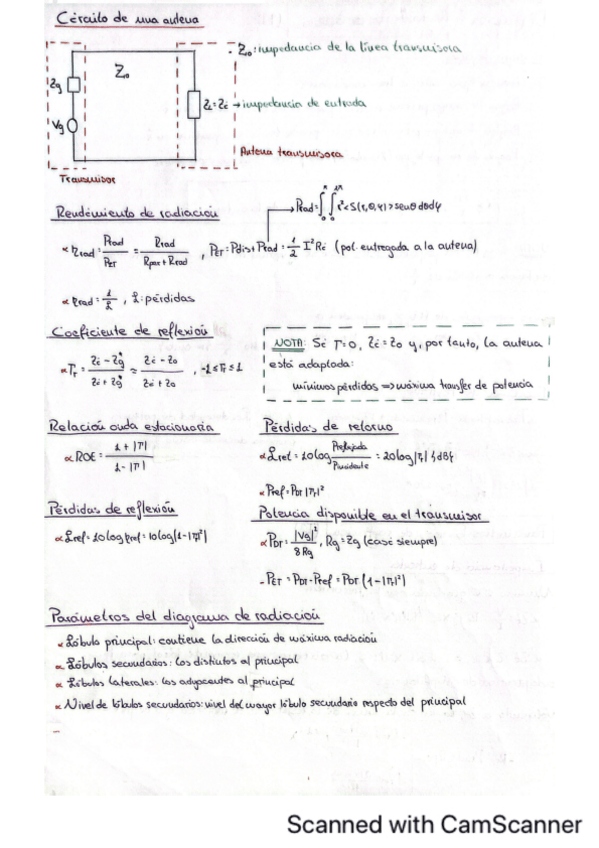 Circuito de una antena
Z₀: impedancia de la línea transmisora
Zg
Z₀
ZL = Zi → impedancia de entrada
Vg
Antena transmisora
Transmisor
Rendimiento de radiación
Prad = ∫₀^π ∫₀^2π r² <S(r,θ,φ)> senθ dθdφ
ηrad = Prad / PET = Rrad / (Rper + Rrad) , PET = Pdis + Prad = 1/2 I² Ri (pot. entregada a la antena)
ηrad = 1/L , L: pérdidas
Coeficiente de reflexión
NOTA: Si Γ=0, Zi = Z0 y, por tanto, la antena
está adaptada:
mínimas pérdidas ⇒ máxima transfer de potencia
Γr = (Zi - Zg*) / (Zi + Zg*) = (Zi - Z0) / (Zi + Z0) , -1 ≤ Γr ≤ 1
Relación onda estacionaria
Pérdidas de retorno
ROE = (1 + |Γ|) / (1 - |Γ|)
Lret = 10log Preflejada / Pincidente = 20log|Γ| {dB}
Pref = PDT |Γ|²
Pérdidas de reflexión
Potencia disponible en el transmisor
Lref = 10log ηref = 10log(1-|Γ|²)
PDT = |Vg|² / 8Rg , Rg = Zg (casi siempre)
- PET = PDT - Pref = PDT (1-|Γ|²)
Parámetros del diagrama de radiación
Lóbulo principal: contiene la dirección de máxima radiación
Lóbulos secundarios: los distintos al principal
Lóbulos laterales: los adyacentes al principal
Nivel de lóbulos secundarios: nivel del mayor lóbulo secundario respecto del principal
Scanned with CamScanner